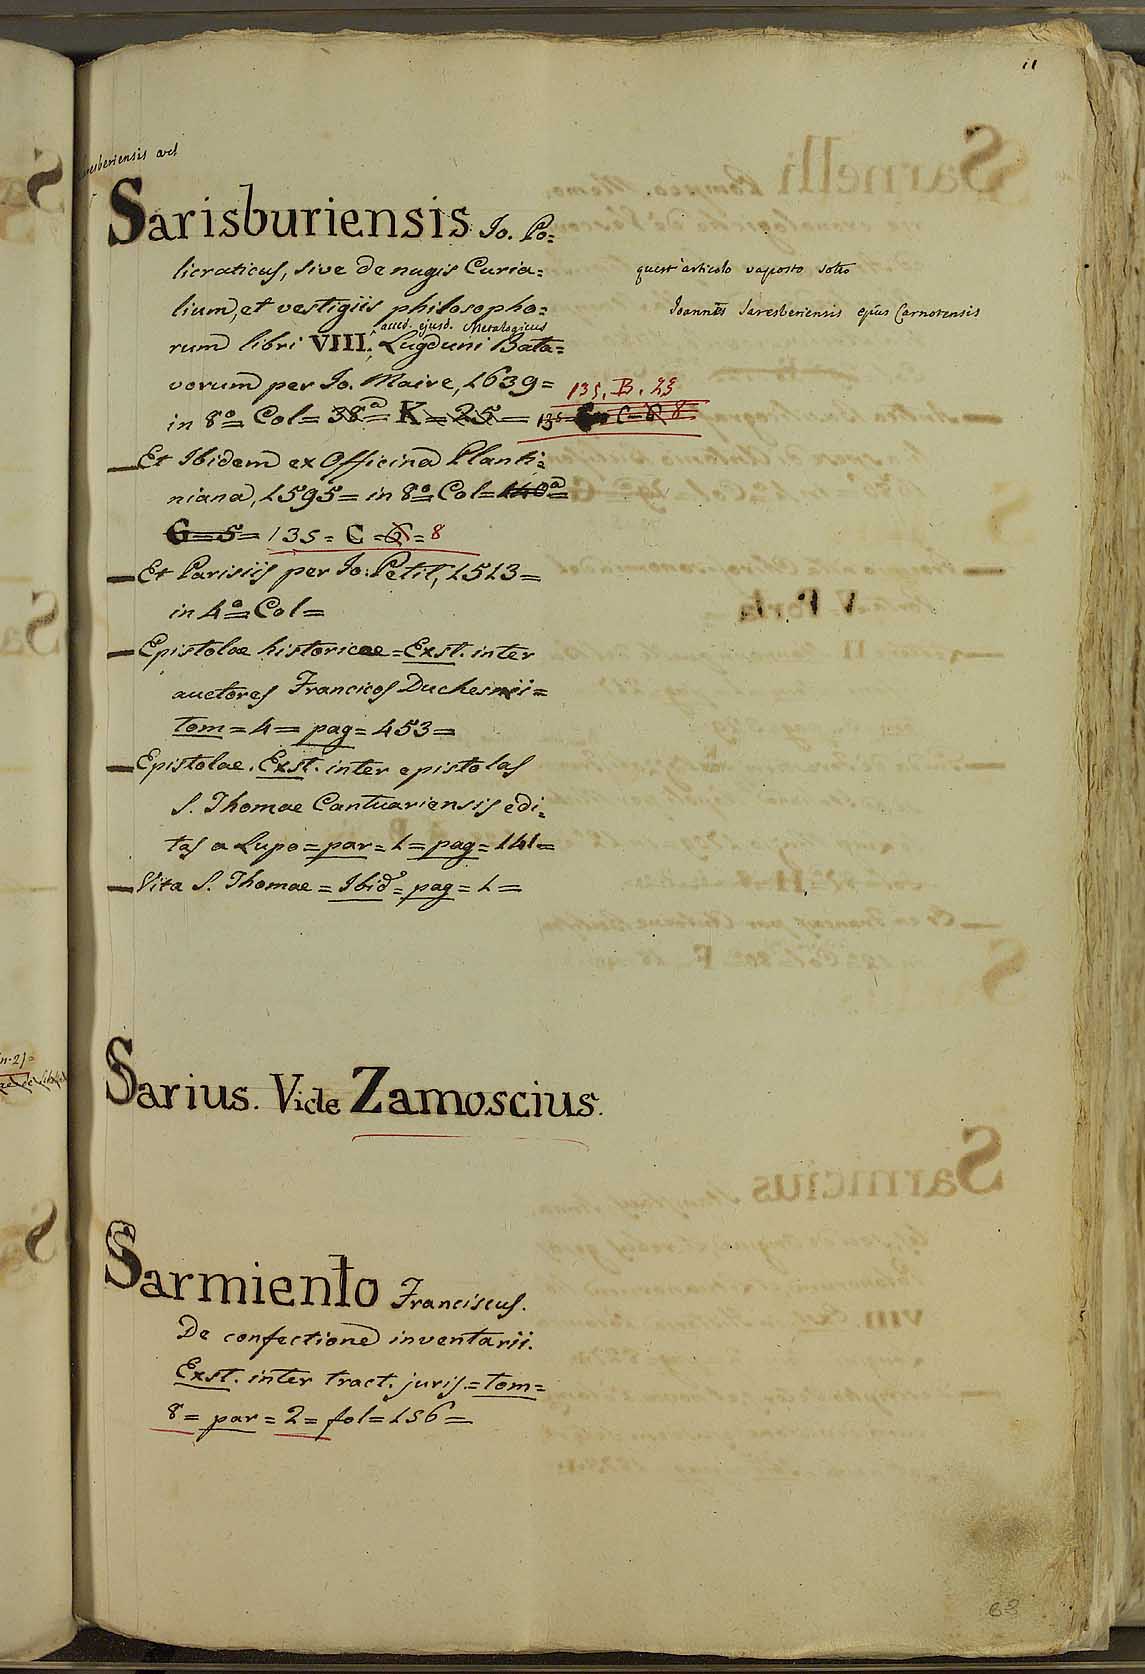 11
Saresberiensis vel
Sarisburiensis Jo. Po=
licraticus, sive de nugis Curia=
lium, et vestigiis philosopho=
accd. ejusd. Metalogicus
rum libri VIII. Lugduni Bata=
vorum per Jo. Maire, 1639=
135. B. 23
in 8º= Col= 38ª= K= 25= 135= C= 6 8
quest'articolo va posto sotto
Joannes Saresberiensis epũs Carnotensis
Et Ibidem ex Officina Planti=
niana, 1595= in 8º= Col= 140ª=
G= 5= 135= C= 6= 8
Et Parisiis per Jo: Petit, 1513=
in 4º= Col=
Epistolae historicae= Exst. inter
auctores Francicos Duchesnii=
tom= 4= pag= 453=
Epistolae. Exst. inter epistolas
S. Thomae Cantuariensis edi=
tas a Lupo= par= 1= pag= 141=
Vita S. Thomae= Ibid= pag= 1=
Sarius. Vide Zamoscius.
Sarmiento Franciscus.
De confectione inventarii.
Exst. inter tract. juris.= tom=
8= par= 2= fol= 156=
63